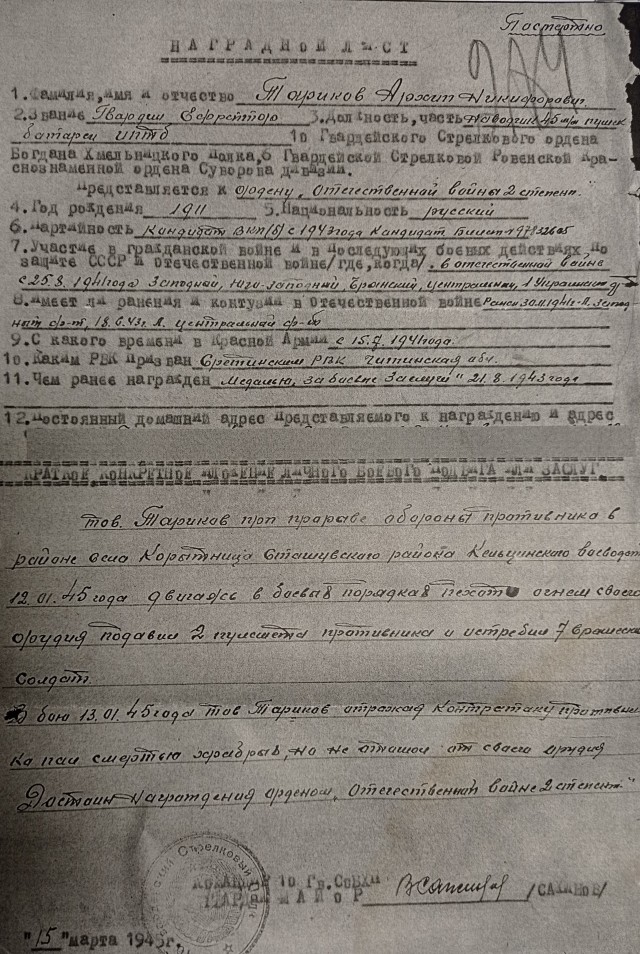 Посмертно
НАГРАДНОЙ ЛИСТ
1. Фамилия, имя и отчество Тариков Архип Никифорович
2. Звание Гвардии Ефрейтор 3. Должность, часть наводчик 45 м/м пушек
батареи ИПТБ 10 Гвардейского Стрелкового ордена
Богдана Хмельницкого полка, 6 Гвардейской Стрелковой Ровенской Кра-
снознаменной ордена Суворова дивизии.
Представляется к ордену "Отечественной войны 2 степени"
4. Год рождения 1911 5. Национальность русский
6. Партийность Кандидат ВКП/б/ с 1943 года Кандидат Билет
7. Участие в гражданской войне и в последующих боевых действиях по
защите СССР и отечественной войне/где, когда/. В отечественной войне
с 25.8.1941 года Западной, Юго-Западной, Брянский, Центральный, 1 Украинский
8. Имеет ли ранения и контузии в отечественной войне Ранен 30.11.1941г. Л. Запад
ный ф-т, 18.6.43г. Л. Центральной ф-
9. С какого времени в Красной Армии с 15.7.1941 года.
10. Каким РВК призван Сретинским РВК Читинская обл.
11. Чем ранее награжден Медалью "За боевые заслуги" 21.8.1943 года
12. Постоянный домашний адрес представляемого к награждению и адрес
КРАТКОЕ КОНКРЕТНОЕ ИЗЛОЖЕНИЕ ЛИЧНОГО БОЕВОГО ПОДВИГА ИЛИ ЗАСЛУГ
Тов. Тариков при прорыве обороны противника в
районе села Корытница Сташувского района Кельцинского воеводст
12.01.45 года двигаясь в боевых порядках пехоты огнем своего
орудия подавил 2 пулемета противника и истребил 7 вражеских
Солдат.
В бою 13.01.45 года тов Тариков отражая контратаку противни
ка пал смертью храбрых, но не отошол от своего орудия
Достоин награждения орденом "Отечественной войне 2 степени"
КОМАНДИР 10 Гв.
ГВАРДИИ МАЙОР
"15" марта 1945г.